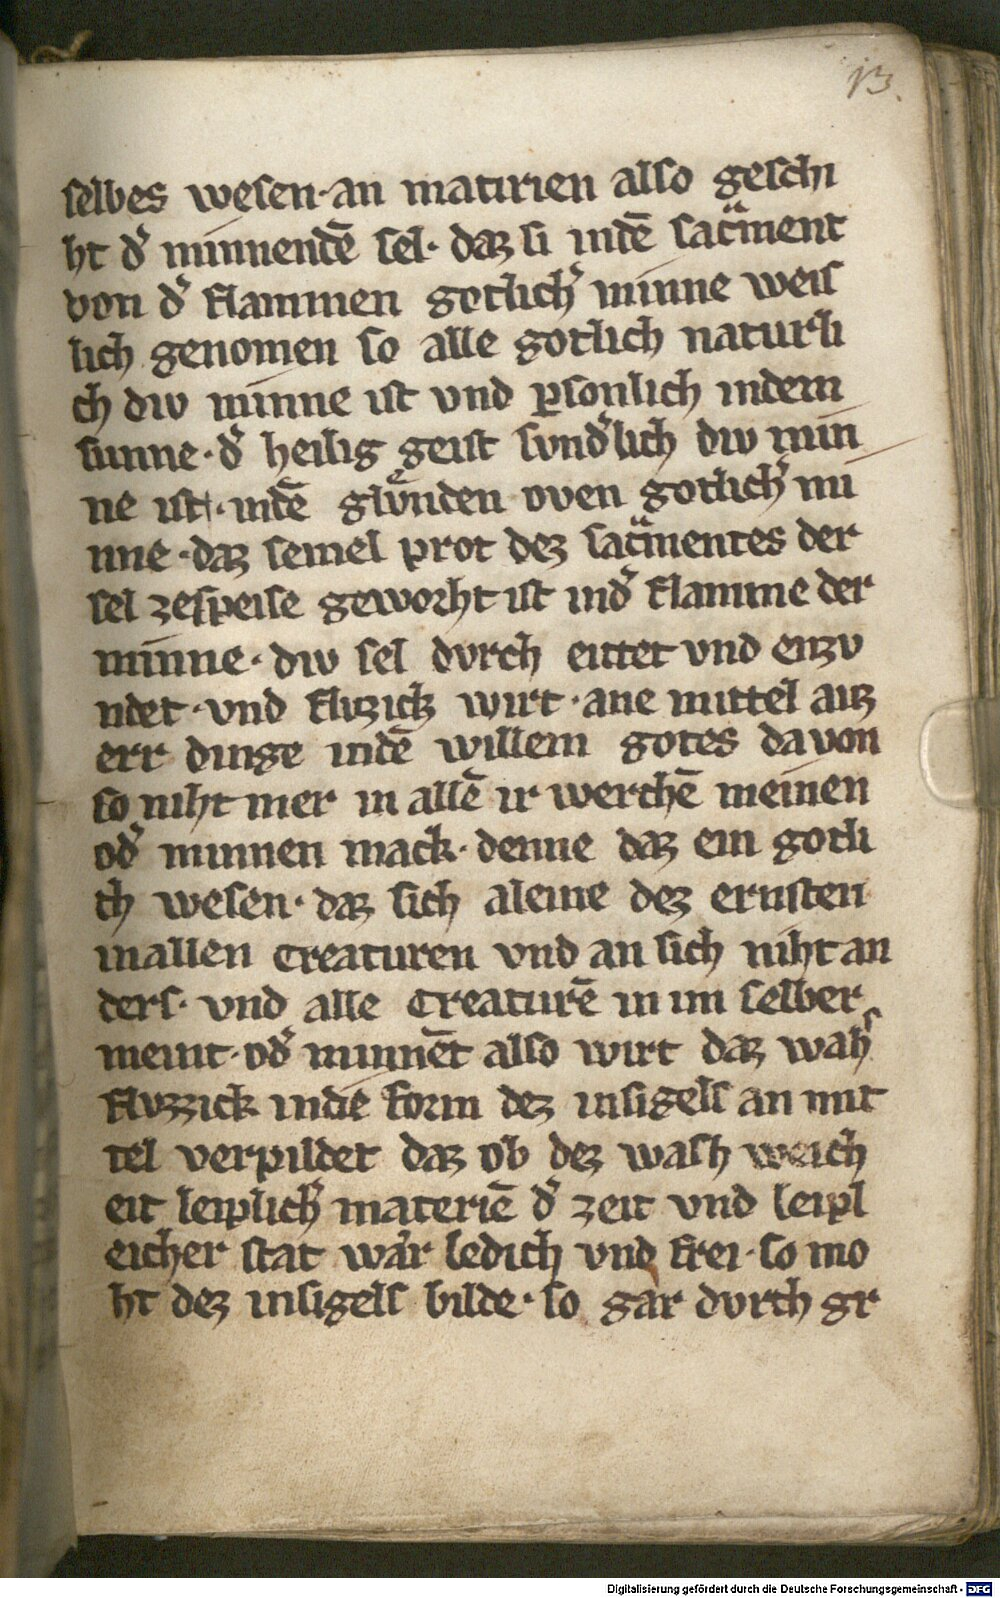 13.
selbes wesen · an matirien also geschi
ht d̾ minnendē sel · daz si indē sac̈ment
von d̾ flammen gotlich̾ minne weis
lich genomen so alle gotlich naturli
ch diw minne ist vnd ꝑsonlich indem
sunne · d̾ heilig geist svnd̾lich diw min
ne ist · indē glvͤnden oven gotlich̾ mi
nne · daz semel prot dez sac̈mentes der
sel zespeise geworht ist ind̾ flamme der
minne · diw sel dvrch eittet vnd enzv
ndet · vnd flizick wirt · ane mittel auz
err dinge indē willem gotes da von
so niht mer in allē ir werchē meinen
od̾ minnen mack · denne daz ein gotli
ch wesen · daz sich aleine dez ernsten
inallen creaturen vnd an sich niht an
ders · vnd alle creaturē in im selber
meint · od̾ minnēt also wirt daz wahs
flvzzick indie form dez insigels an mit
tel verpildet daz ob dez wash weich
eit leiplich̾ materiē d̾ zeit vnd leipl
eicher stat wär ledich vnd frei · so mo
ht dez insigels bilde · so gar dvrch gr
Digitalisierung gefördert durch die Deutsche Forschungsgemeinschaft - DFG